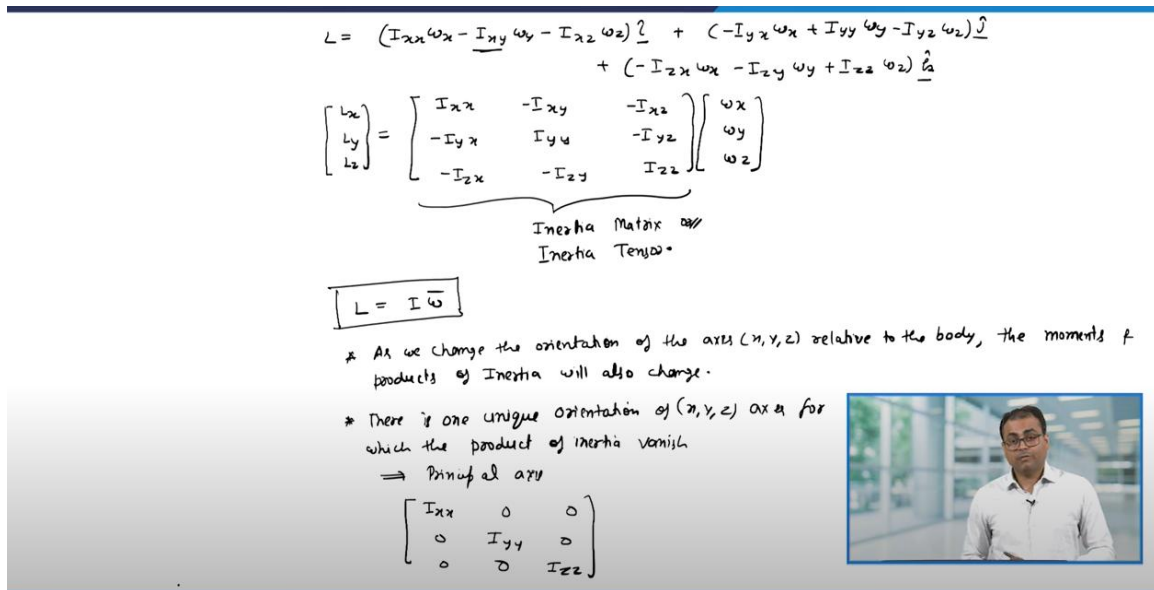 L = (Ixx ωx - Ixy ωy - Ixz ωz) î + (-Iyx ωx + Iyy ωy - Iyz ωz) ĵ
+ (-Izx ωx - Izy ωy + Izz ωz) k̂
[Lx Ly Lz] = [Ixx -Ixy -Ixz
-Iyx Iyy -Iyz
-Izx -Izy Izz] [ωx ωy ωz]
Inertia Matrix or
Inertia Tensor.
L = I ω̅
* As we change the orientation of the axes (x, y, z) relative to the body, the moments &
products of Inertia will also change.
* There is one unique orientation of (x, y, z) axes for
which the product of inertia vanish
⇒ Principal axes
[Ixx 0 0
0 Iyy 0
0 0 Izz]